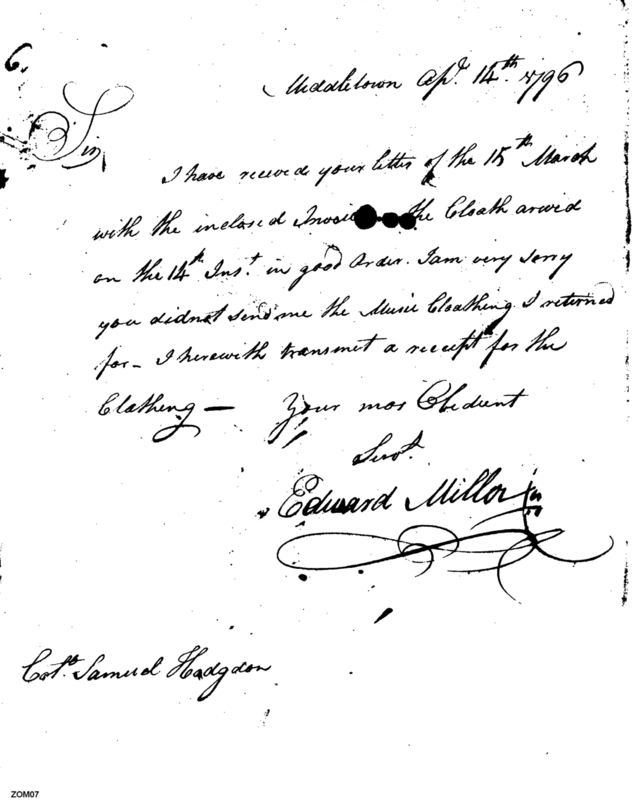 6.
Middletown Apl. 14th. 1796
Sir,
I have receved your letter of the 15th March
with the inclosed Invoice the Cloath arived
on the 14th Inst. in good Order. I am very sorry
you did not send me the Music Cloathing I returned
for – I herewith transmit a receept for the
Clathing — Your mos Obedient
Servt.
Edward Miller
Samuel Hodgdon
ZOM07